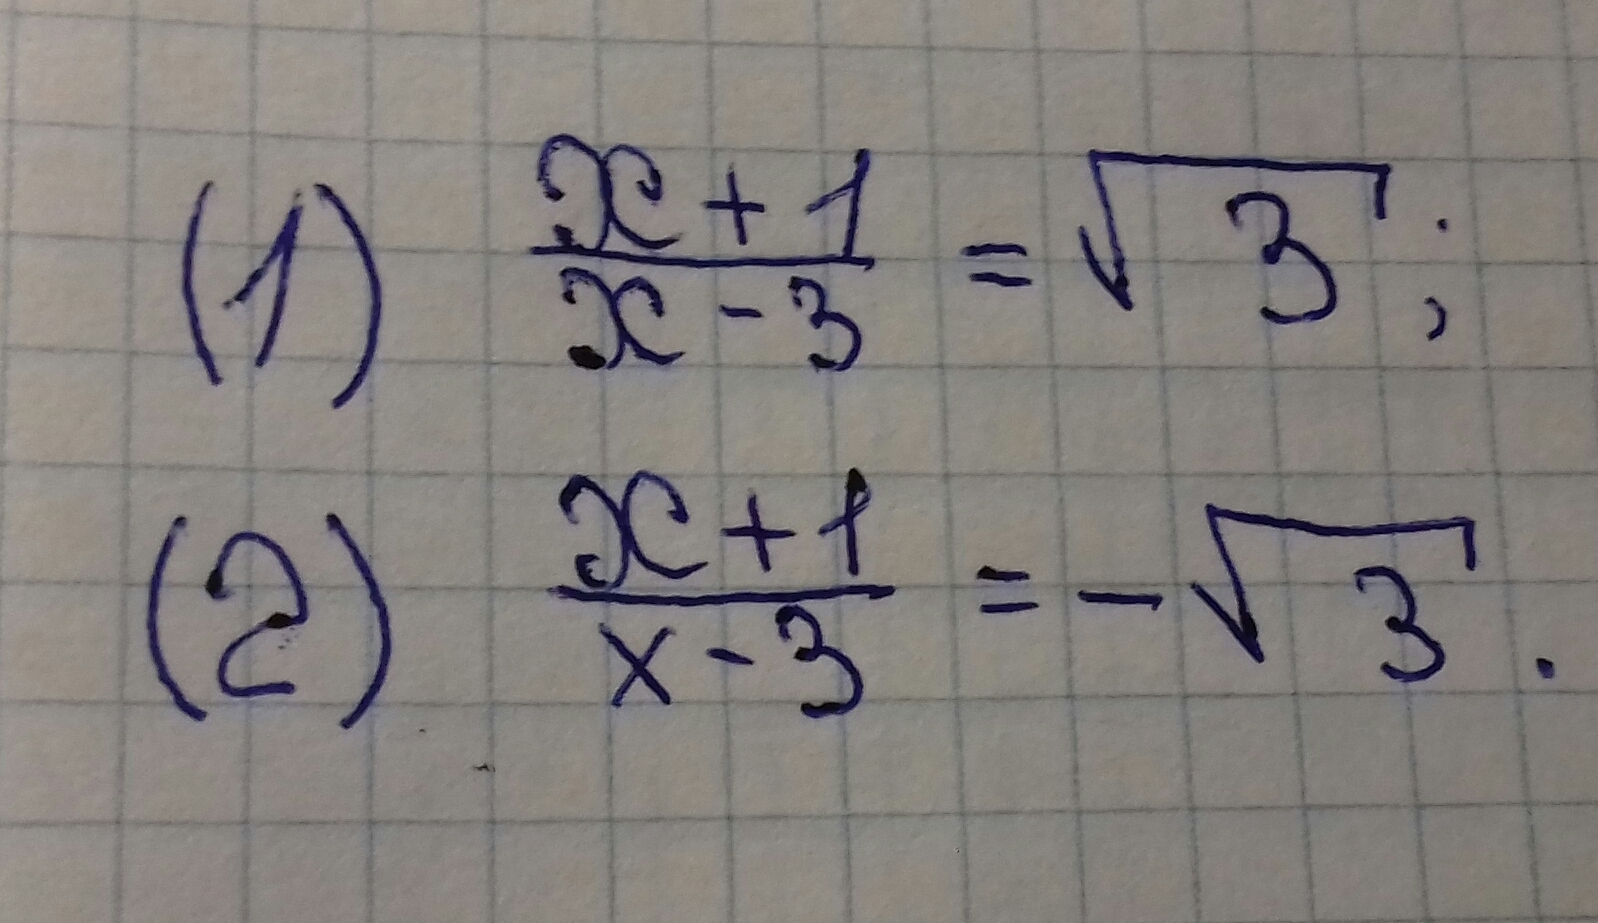 (1) \frac{x+1}{x-3} = \sqrt{3};
(2) \frac{x+1}{x-3} = -\sqrt{3}.